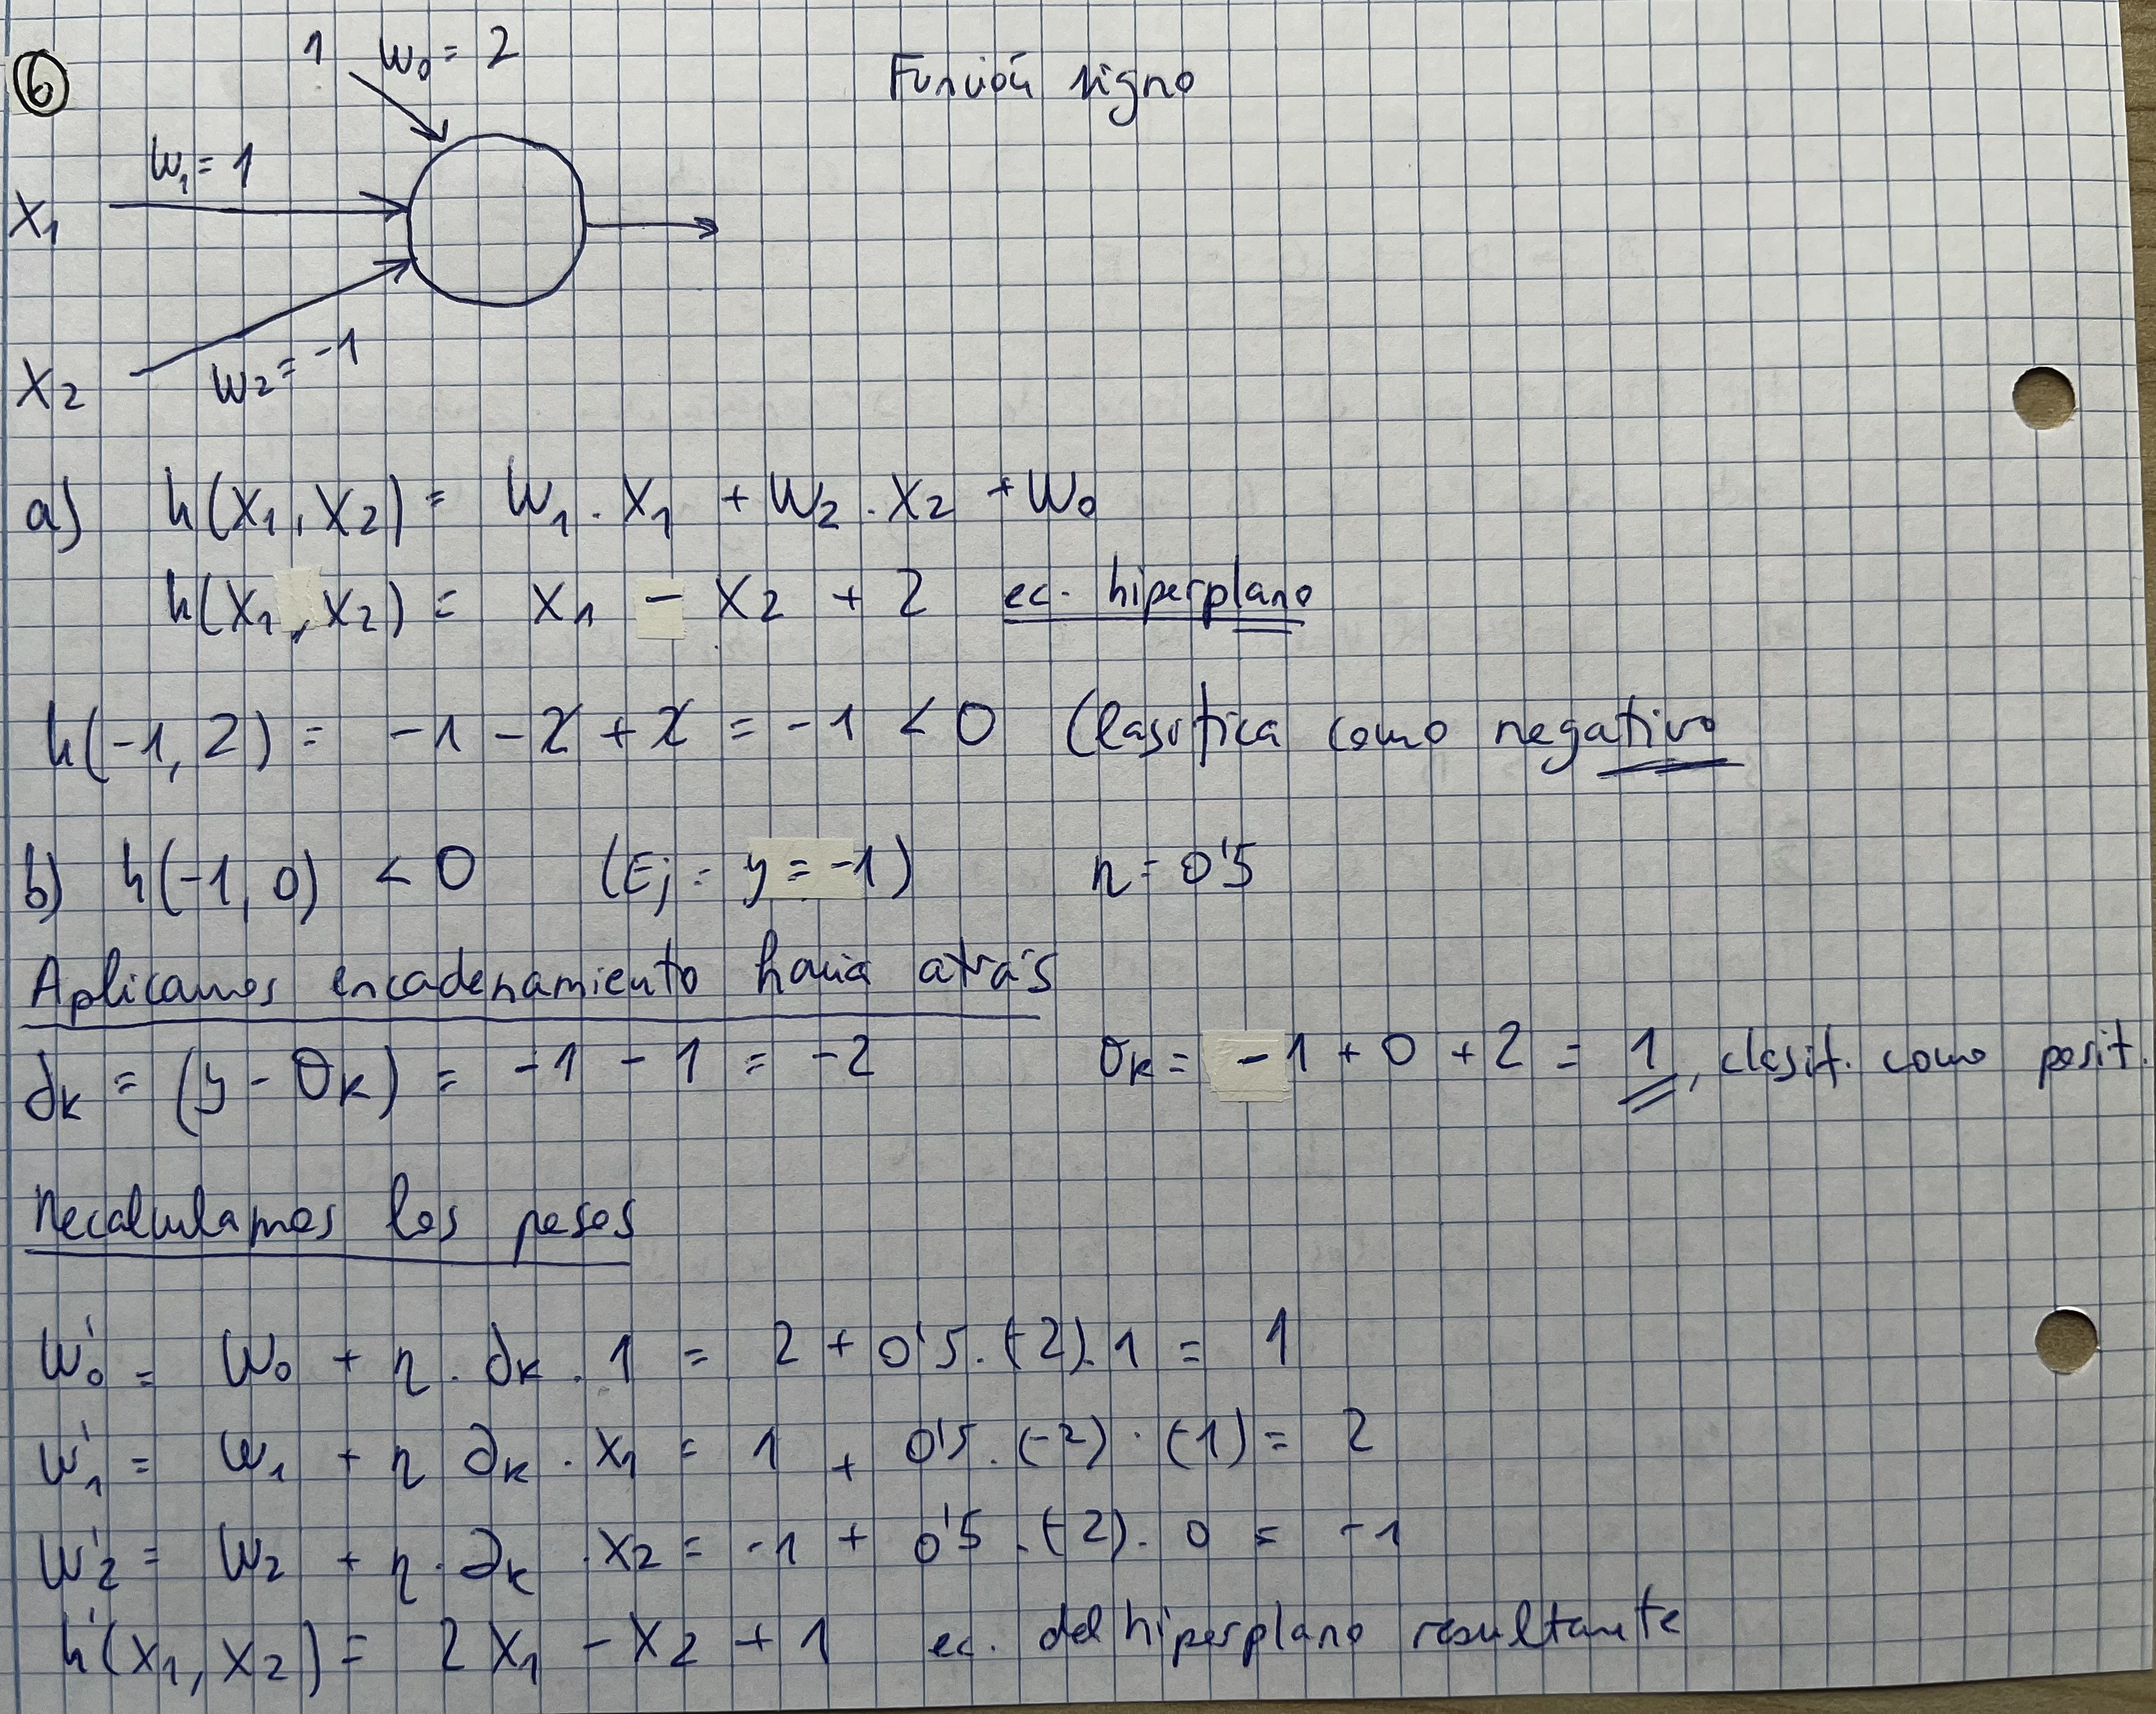 6
1 w₀ = 2
Función signo
w₁ = 1
x₁
w₂ = -1
x₂
a) h(x₁, x₂) = w₁ · x₁ + w₂ · x₂ + w₀
h(x₁, x₂) = x₁ - x₂ + 2 ec. hiperplano
h(-1, 2) = -1 - 2 + 2 = -1 < 0 Clasifica como negativo
b) h(-1, 0) < 0 (Ej: y = -1) η = 0'5
Aplicamos encadenamiento hacia atrás
∂k = (y - Ok) = -1 - 1 = -2 Ok = -1 + 0 + 2 = 1, clasif. como posit.
Recalculamos los pesos
w₀' = w₀ + η · ∂k · 1 = 2 + 0'5 · (-2) · 1 = 1
w₁' = w₁ + η ∂k · x₁ = 1 + 0'5 · (-2) · (-1) = 2
w₂' = w₂ + η · ∂k · x₂ = -1 + 0'5 · (-2) · 0 = -1
h'(x₁, x₂) = 2x₁ - x₂ + 1 ec. del hiperplano resultante